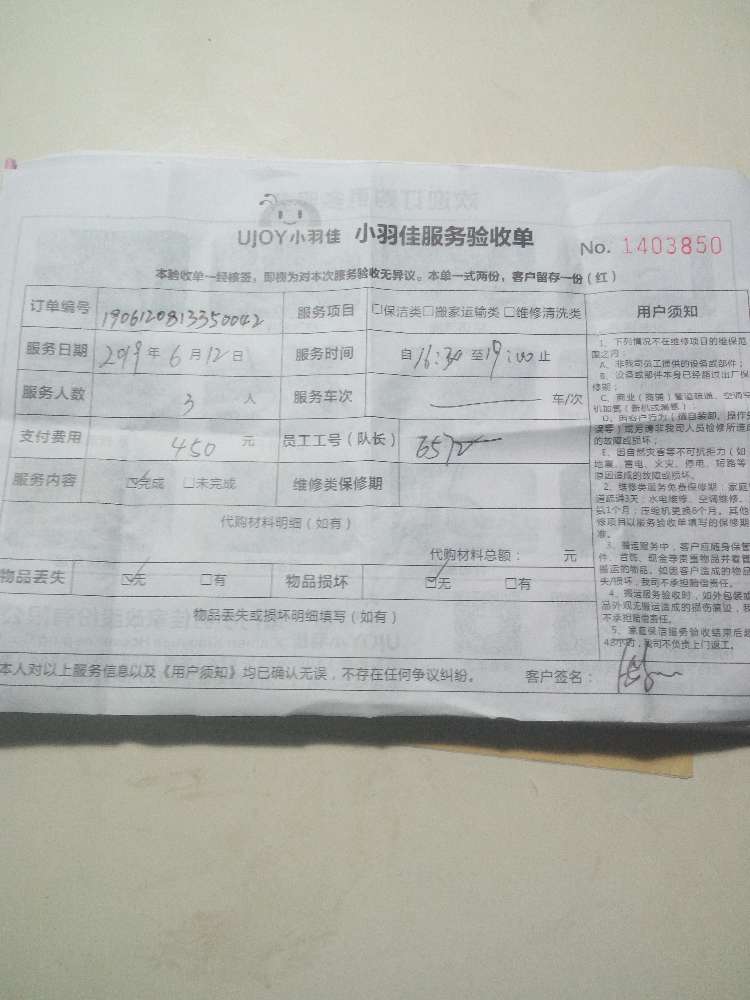 UJOY小羽佳 小羽佳服务验收单
No. 1403850
本验收单一经核签，即视为对本次服务验收无异议。本单一式两份，客户留存一份（红）
订单编号 1906120813350042 服务项目 □保洁类□搬家运输类 □维修清洗类 用户须知
服务日期 2019年6月12日 服务时间 自16:30至19:00止
服务人数 3 人 服务车次 车/次
支付费用 450 元 员工工号（队长） 6572
服务内容 ☑完成 □未完成 维修类保修期
代购材料明细（如有）
代购材料总额： 元
物品丢失 ☑无 □有 物品损坏 ☑无 □有
物品丢失或损坏明细填写（如有）
本人对以上服务信息以及《用户须知》均已确认无误，不存在任何争议纠纷。 客户签名：
1、下列情况不在维修项目的维保范
围之内：
A、非我司员工提供的设备或部件；
B、设备或部件本身已经超过出厂保
修期；
C、商业（商铺）管道疏通、空调
机加氨（新机或漏氨）
误等）或另请非我司人员检修所造成
的故障或损坏；
E、因自然灾害等不可抗拒力（如
地震、雷电、火灾、停电、短路等
原因造成的故障或损坏。
2、维修类服务免费保修期：家庭
道疏通3天；水电维修、空调维修、
1个月；压缩机更换6个月。其他
修项目以服务验收单填写的保修期
准。
3、搬运服务中，客户应随身保管
件、首饰、现金等贵重物品并看管
搬运的物品。如因客户造成的物品
失/损坏，我司不承担赔偿责任。
4、搬运服务验收时，如外包装或
品外观无搬运造成的损伤痕迹，我
不承担赔偿责任。
5、家庭保洁服务验收结束后超
48小时，我司不负责上门返工。